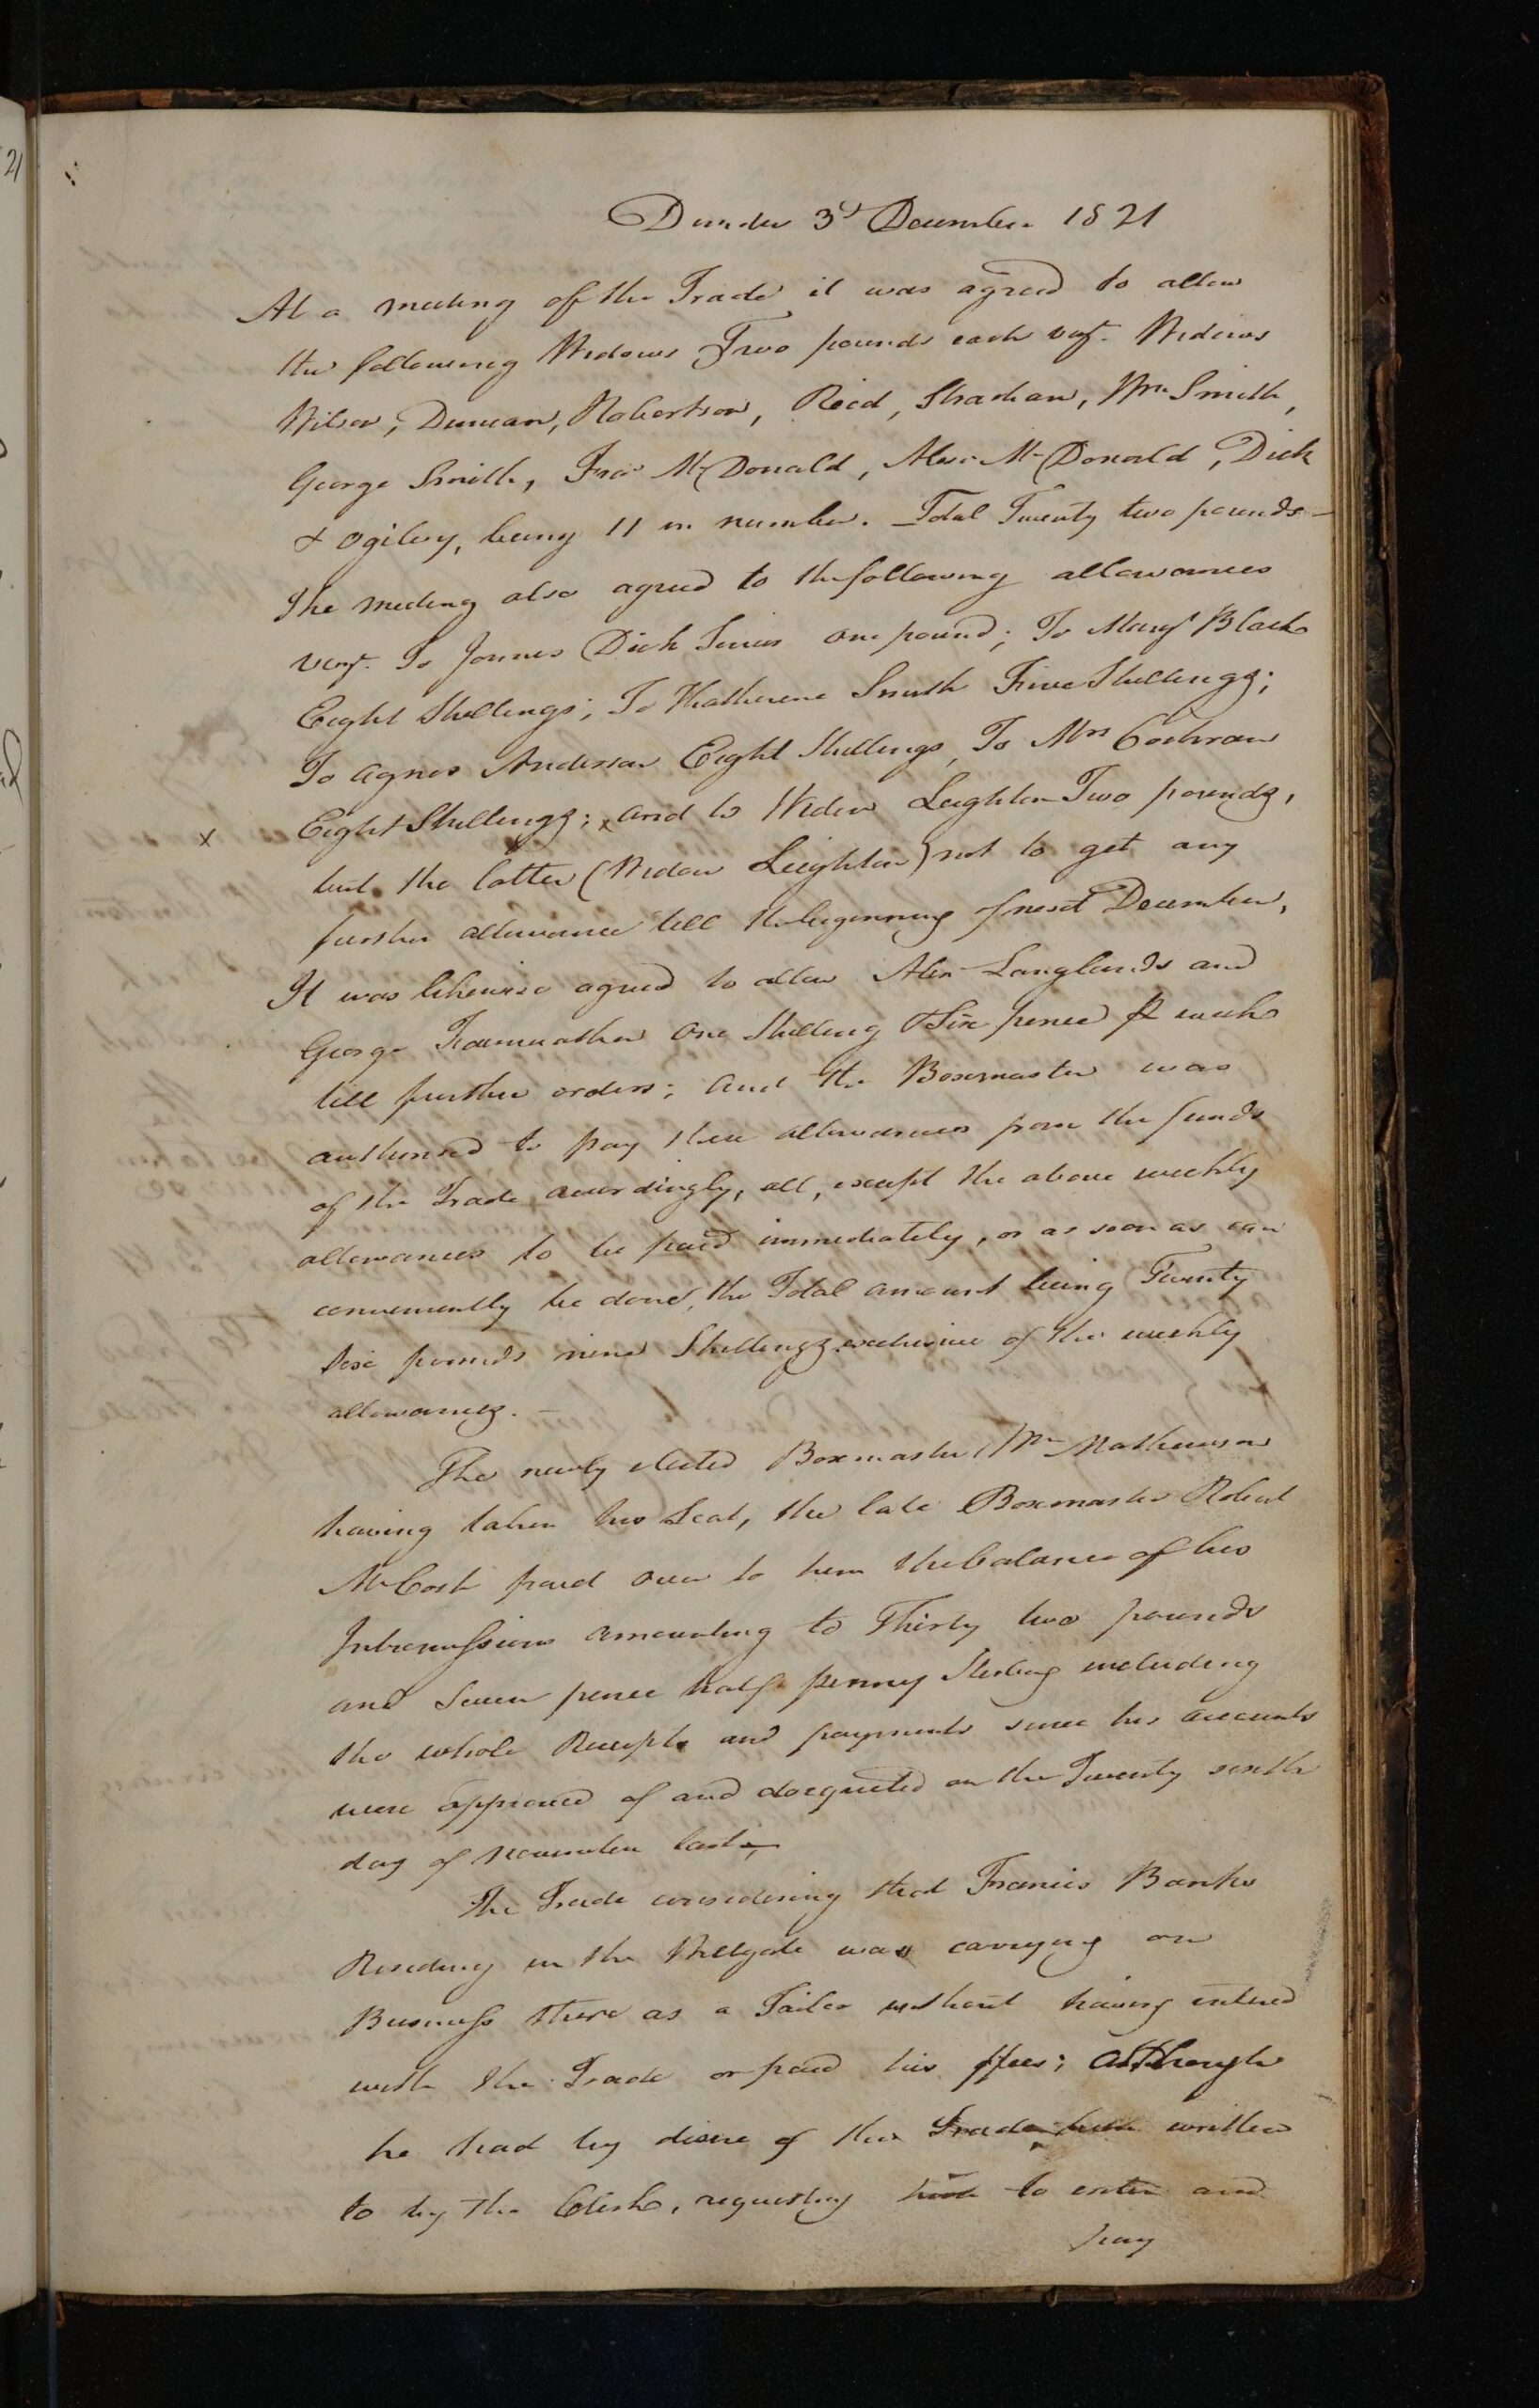 Dundee 3d December 1821
At a meeting off the Trade it was agreed to allow
the following Widows Two pounds each vizt. Widows
Wilson, Duncan, Robertson, Reid, Strachan, Wm Smith,
George Smith, Fras McDonald, Alexr McDonald, Dick
& Ogilvy, being 11 in number. Total Twenty two pounds –
The meeting also agreed to the following allowances
vizt. To James Dick Senior one pound; To Mary Black
Eight Shillings; To Katherine Smith Five Shillings;
To Agnes Anderson Eight Shillings, To Mrs Cochran
x Eight Shillings; x and to Widow Leighton Two pounds,
but the latter (Widow Leighton) not to get any
further allowance till the beginning of next December,
It was likewise agreed to allow Alexr Langlands and
George One Shilling & Six pence  week
till further orders; and the Boxmaster was
authorised to pay these allowances from the funds
of the Trade accordingly, all, except the above weekly
allowances to be paid immediately, or as soon as can
conveniently be done, the Total amount being Twenty
Six pounds nine Shillings exclusive of the weekly
allowances. –
The newly elected Boxmaster Wm Mathewson
having taken his Seat, the late Boxmaster Robert
McCosh paid over to him the balance of his
Intromissions amounting to Thirty two pounds
and Seven pence half penny Sterling including
the whole Receipts and payments since his accounts
were approved of and docqueted on the Twenty sixth
day of November last. –
The Trade considering that Francis Banks
Residing in the Wellgate was carrying on
Business there as a Tailor without having entered
with the Trade or paid his ffees; Although
he had by desire of the Trade been written
to by the Clerk, requesting him to enter and
pay